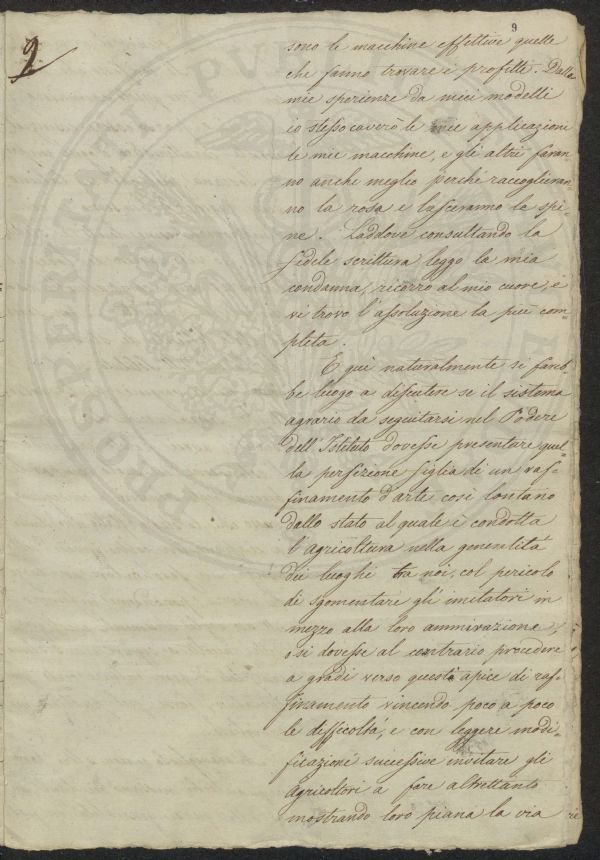 9
2
sono le macchine effettive quelle
che fanno trovare i profitti. Dalle
mie sperienze da miei modelli
io stesso caverò le mie applicazioni
le mie macchine, e gli altri faran-
no anche meglio perchè raccoglieran-
no la rosa e lasceranno le spi-
ne. Laddove consultando la
fedele scrittura leggo la mia
condanna, ricorro al mio cuore, e
vi trovo l'assoluzione la più com-
pleta.
E quì naturalmente si fareb-
be luogo a discutere se il sistema
agrario da seguitarsi nel Podere
dell'Istituto dovesse presentare quel-
la perfezione figlia di un raf-
finamento d'arte così lontano
dallo stato al quale è condotta
l'agricoltura nella generalità
dei luoghi tra noi, col pericolo
di sgomentare gl'imitatori in
mezzo alla loro ammirazione,
o si dovesse al contrario procedere
a gradi verso questo apice di raf-
finamento vincendo poco a poco
le difficoltà, e con leggere modi-
ficazioni successive invitare gli
agricoltori a fare altrettanto
mostrando loro piana la via
PROSPERITATI PUBLICAE